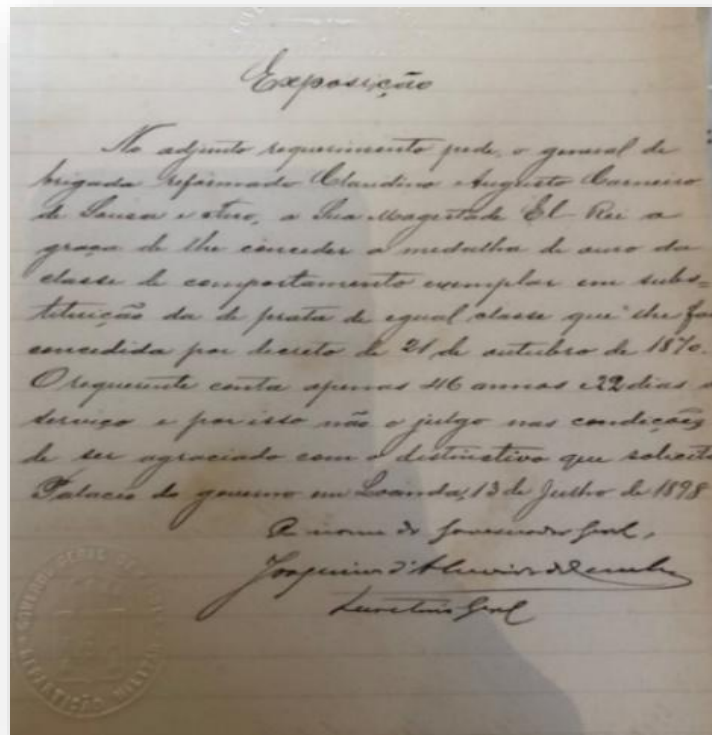 Exposição
No adjunto requerimento pede, o general de
brigada reformado Claudino Augusto Carneiro
de Sousa e Faro, a Sua Magestade El-Rei a
graça de lhe conceder a medalha de ouro da
classe de comportamento exemplar em subs=
tituição da de prata de egual classe que lhe foi
concedida por decreto de 21 de outubro de 1870.
O requerente conta apenas 46 annos e 22 dias
serviço e por isso não o julgo nas condições
de ser agraciado com o distinctivo que solicita
Palacio do governo em Loanda, 13 de Julho de 1898
governador geral,
Joaquim d'Almeida da Cunha
Secretario geral
GOVERNO GERAL DE
REPARTIÇÃO MILITAR